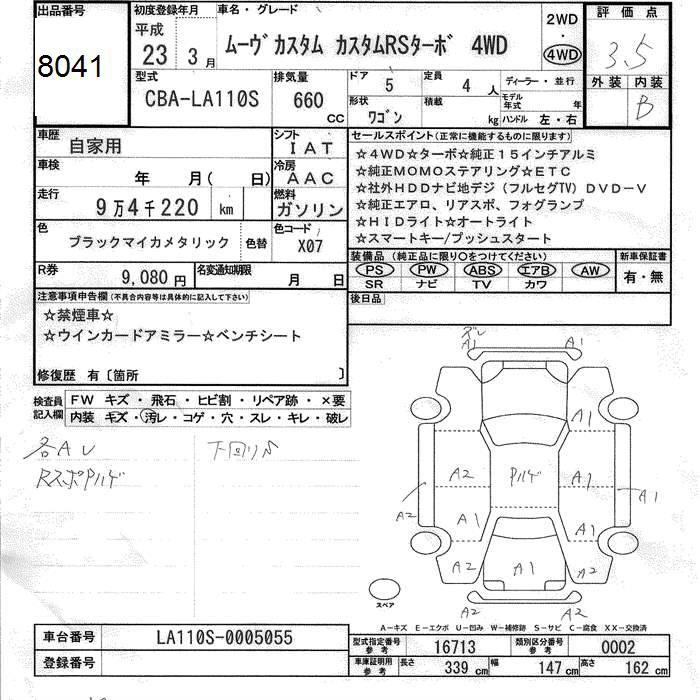 出品番号
8041
初度登録年月
平成
23 3 月
車名・グレード
ムーヴカスタム カスタムRSターボ 4WD
2WD
・
4WD
評価点
3.5
外装 内装
B
型式
CBA-LA110S
排気量
660
CC
ドア
5
定員
4 人
形状
ワゴン
積載
kg
ディーラー・並行
モデル年式 年
ハンドル 左・右
車歴
自家用
シフト
IAT
車検
年 月( 日)
冷房
AAC
走行
9万4千220 km
燃料
ガソリン
色
ブラックマイカメタリック
色替
色コード
X07
R券
9,080円
名変通知期限
月 日
セールスポイント(正常に機能するものに限ります)
☆4WD☆ターボ☆純正15インチアルミ
☆純正MOMOステアリング☆ETC
☆社外HDDナビ地デジ(フルセグTV)DVD-V
☆純正エアロ、リアスポ、フォグランプ
☆HIDライト☆オートライト
☆スマートキー/プッシュスタート
装備品(純正品に限り○をつけてください)
PS PW ABS エアB AW
SR ナビ TV カワ
新車保証書
有・無
後日品
注意事項申告欄(不具合内容等は具体的に記入して下さい)
☆禁煙車☆
☆ウインカードアミラー☆ベンチシート
修復歴 有〔箇所 〕
検査員
記入欄
FW キズ・飛石・ヒビ割・リペア跡・×要
内装 キズ・汚レ・コゲ・穴・スレ・キレ・破レ
各AU
下回りS
RスポPハゲ
ズレ
A1
A1
A1
A2
Pハゲ
A1
A2
A1
A1
A1
A2
A1
A2
A2
A2
スペア
A-キズ E-エクボ U-凹み W-補修跡 S-サビ C-腐食 XX-交換済
車台番号
LA110S-0005055
登録番号
型式指定番号
参考
16713
類別区分番号
参考
0002
車庫証明用
参考
長さ 339 cm
幅 147 cm
高さ 162 cm